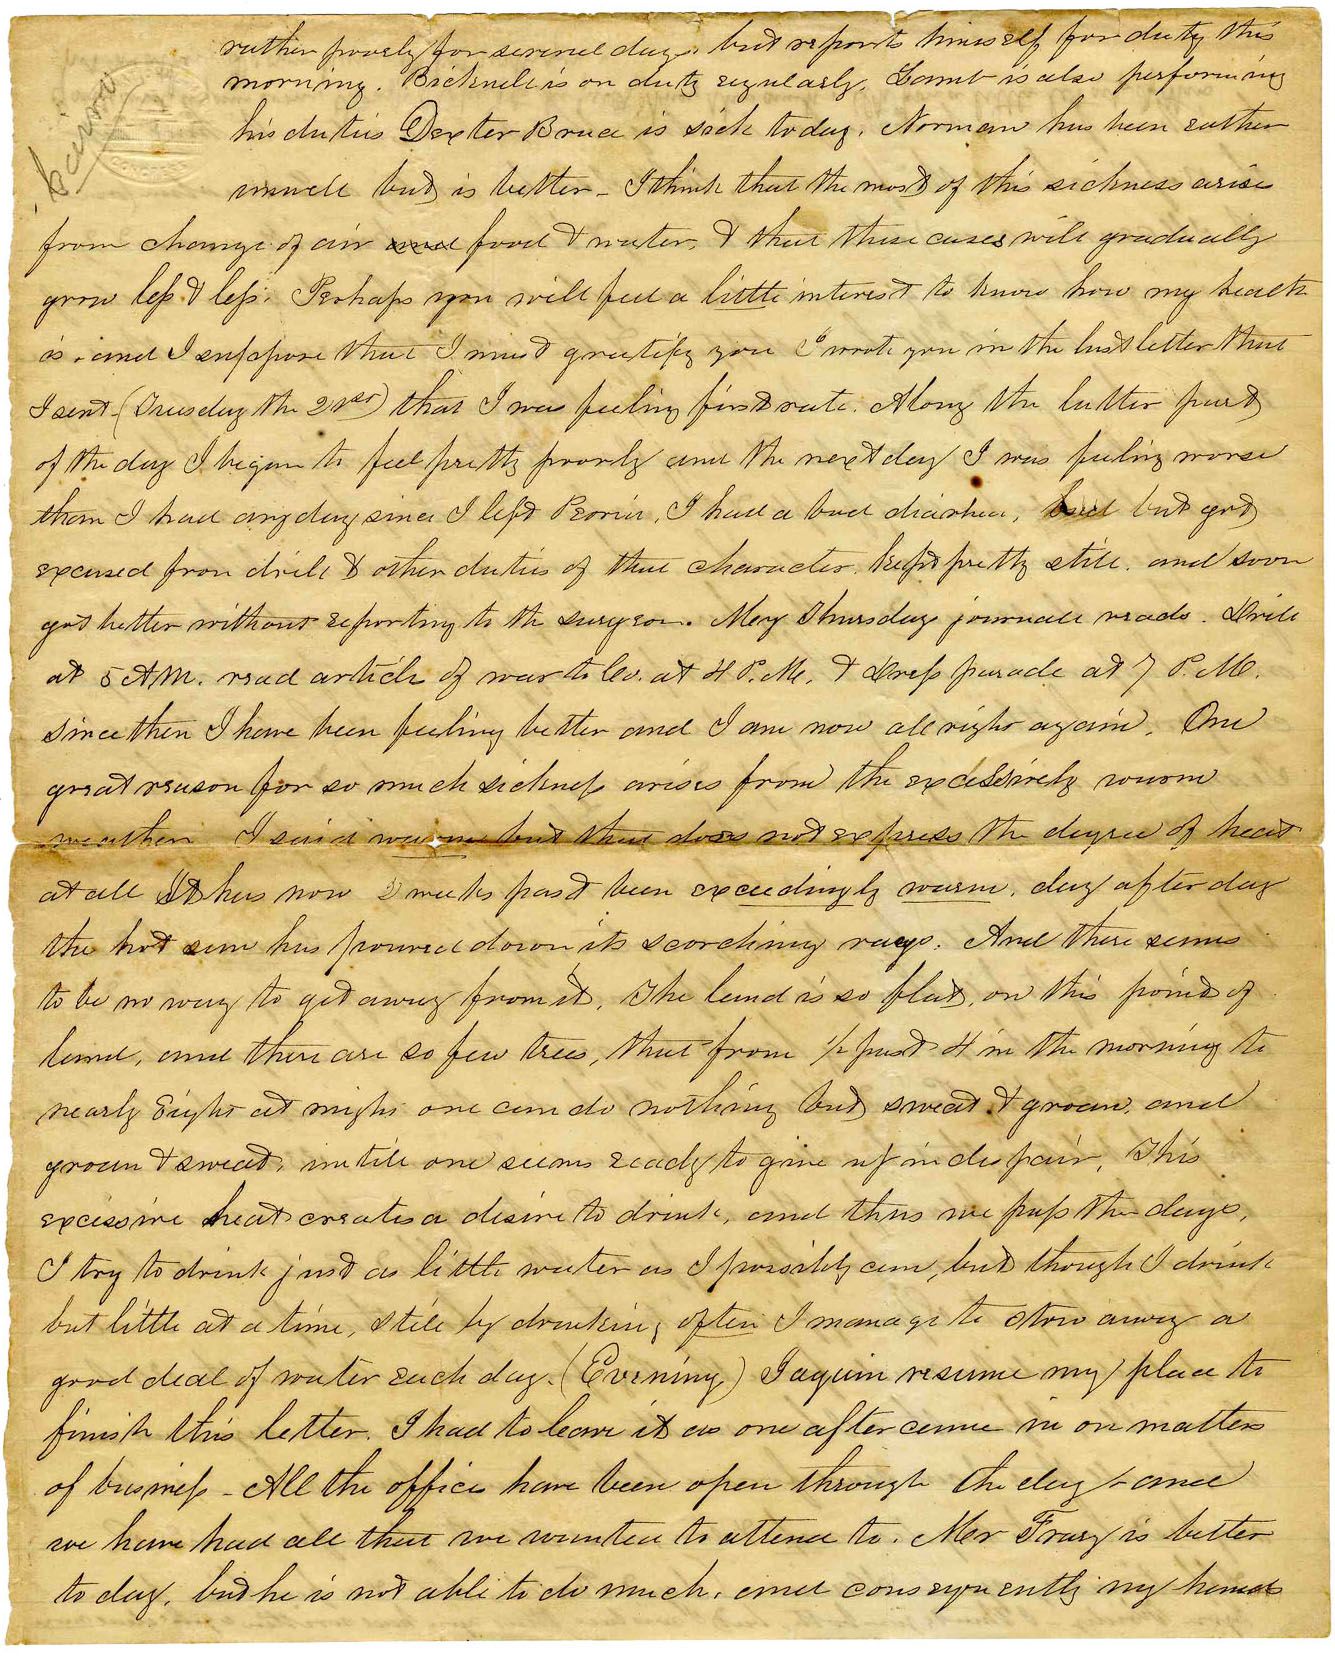 Cairo
rather poorly for several days. but reports himself for duty this
morning. Bicknell is on duty regularly. Lamb is also performing
his duties Dexter Brace is sick today. Norman has been rather
unwell but is better - I think that the most of this sickness arises
from change of air and food & water, & that these cases will gradually
grow less & less. Perhaps you will feel a little interest to know how my health
is. and I suppose that I must gratify you I wrote you in the last letter that
I sent - (Tuesday the 21st) that I was feeling first rate. Along the latter part
of the day I began to feel pretty poorly and the next day I was feeling worse
than I had any day since I left Peoria, I had a bad diarhea, but but got
excused from drill & other duties of that character. kept pretty still. and soon
got better without reporting to the surgeon. My Thursdays journall reads. Drill
at 5 A.M. read article of war to Co. at 4 P.M. & Dress parade at 7 P.M.
since then I have been feeling better and I am now all right again. One
great reason for so much sickness arises from the excessively warm
weather I said warm but that does not express the degree of heat
at all It has now 2 weeks past been exceedingly warm, day after day
the hot sun has poured down its scorching rays. And there seems
to be no way to get away from it, The land is so flat, on this point of
land, and there are so few trees, that from 1/2 past 4 in the morning to
nearly Eight at night one can do nothing but sweat & groan, and
groan & sweat, untill one seems ready to give up in despair, This
excessive heat creates a desire to drink, and thus we pass the days,
I try to drink just as little water as I possibly can, but though I drink
but little at a time, still by drinking often I manage to stow away a
good deal of water each day. (Evening) I again resume my place to
finish this letter. I had to leave it as one after came in on matters
of business - All the offices have been open through the day - and
we have had all that we wanted to attend to. Mr Frary is better
to day, but he is not able to do much, and consequently my hands